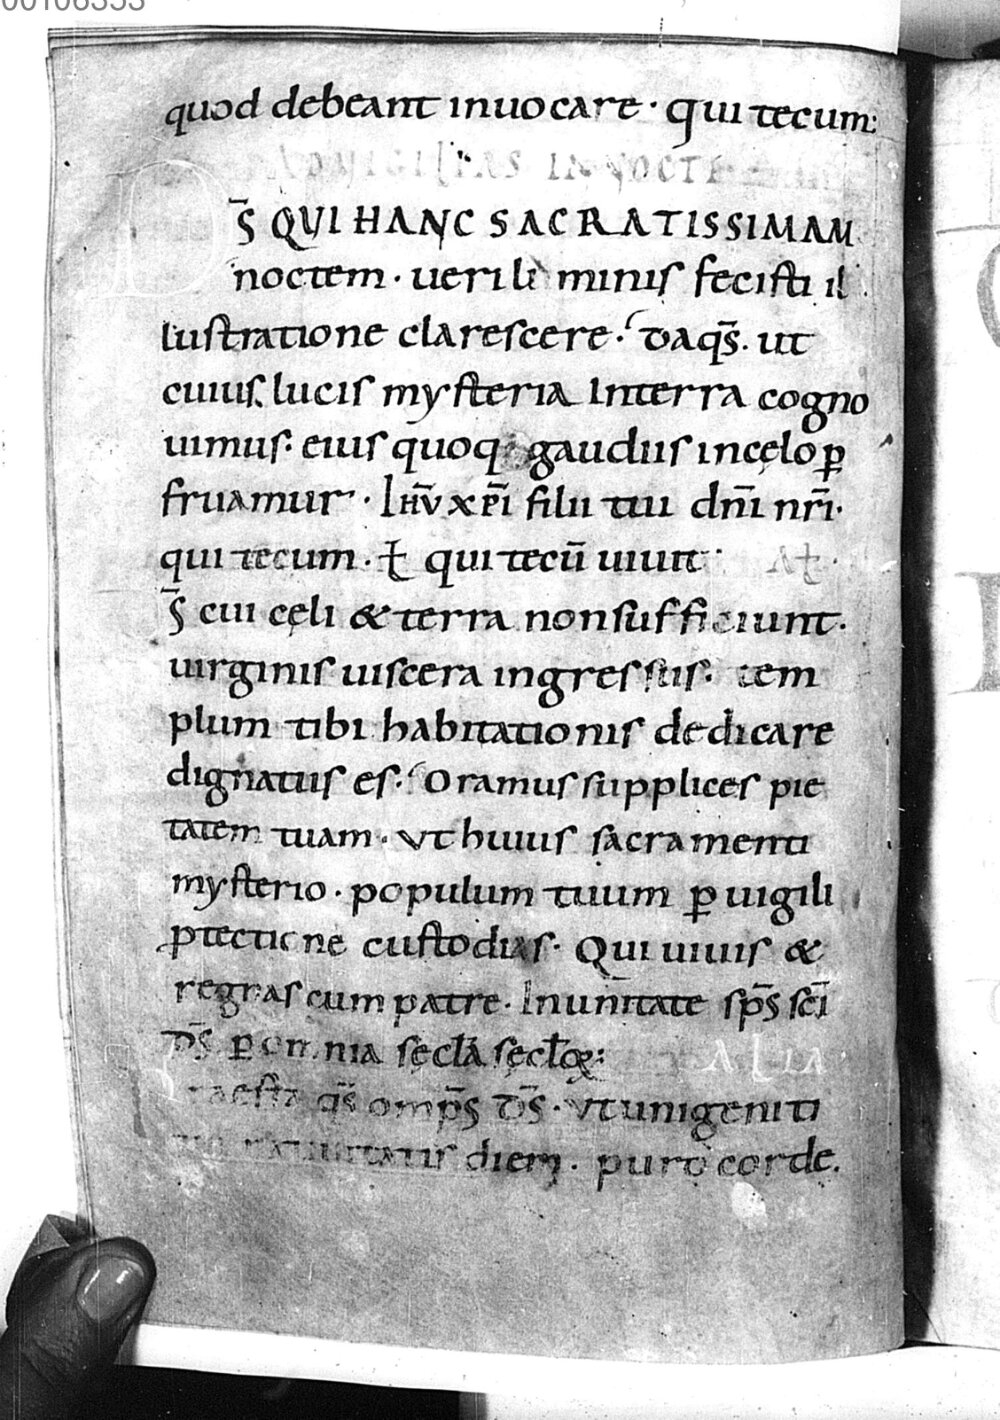 00106353
quod debeant inuocare · qui tecum:
AD UIGILIAS IN NOCTE
D̄S QUI HANC SACRATISSIMAM
noctem · ueri li minis fecisti il
lustratione clarescere · Da qs̄ · ut
cuius lucis mysteria In terra cogno
uimus · eius quoq gaudiis in cęlo ꝑ
fruamur · Ihū xp̄i filii tui dn̄i nr̄i ·
qui tecum · ł qui tecū uiuit
D̄s cui cęli & terra non sufficiunt ·
uirginis uiscera ingressus · tem
plum tibi habitationis dedicare
dignatus es · Oramus supplices pie
tatem tuam · Ut huius sacramenti
mysterio · populum tuum ꝑ uigili
ꝓtectione custodias · Qui uiuis &
regnas cum patre · In unitate sp̄s sc̄i
D̄s ꝑ omnia sęcl̄a sęcl̄oꝝ:
ALIA
Praesta qs̄ omp̄s D̄s · Ut unigeniti
natiuitatis diem · puro corde.